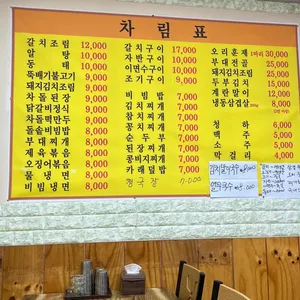 차림표
갈치조림 12,000
알탕 10,000
동태 10,000
뚝배기불고기 9,000
돼지김치조림 9,000
차돌된장 9,000
닭갈비정식 9,000
차돌떡만두 9,000
돌솥비빔밥 9,000
부대찌개 8,000
제육볶음 8,000
오징어볶음 8,000
물냉면 8,000
비빔냉면 8,000
갈치구이 17,000
자반구이 10,000
이면수구이 10,000
조기구이 9,000
비빔밥 7,000
김치찌개 7,000
참치찌개 7,000
콩치찌개 7,000
순두부 7,000
된장찌개 7,000
콩비지찌개 7,000
카레덮밥 7,000
청국장 7.000
오리훈제 1마리 30,000
부대전골 25,000
돼지김치조림 25,000
두부김치 15,000
계란말이 12,000
냉동삼겹살 12,000
청하 6,000
맥주 5,000
소주 5,000
막걸리 4,000